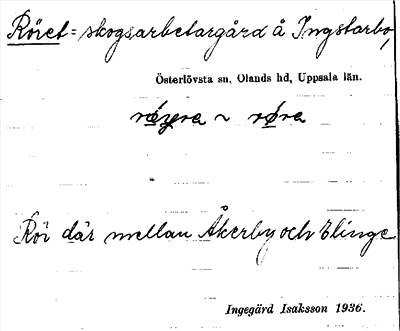 Röret = skogsarbetargård å Ingstarbo,
Österlövsta sn, Olands hd, Uppsala län.
~ røra
Rör där mellan Åkerby och Elinge
Ingegärd Isaksson 1936.